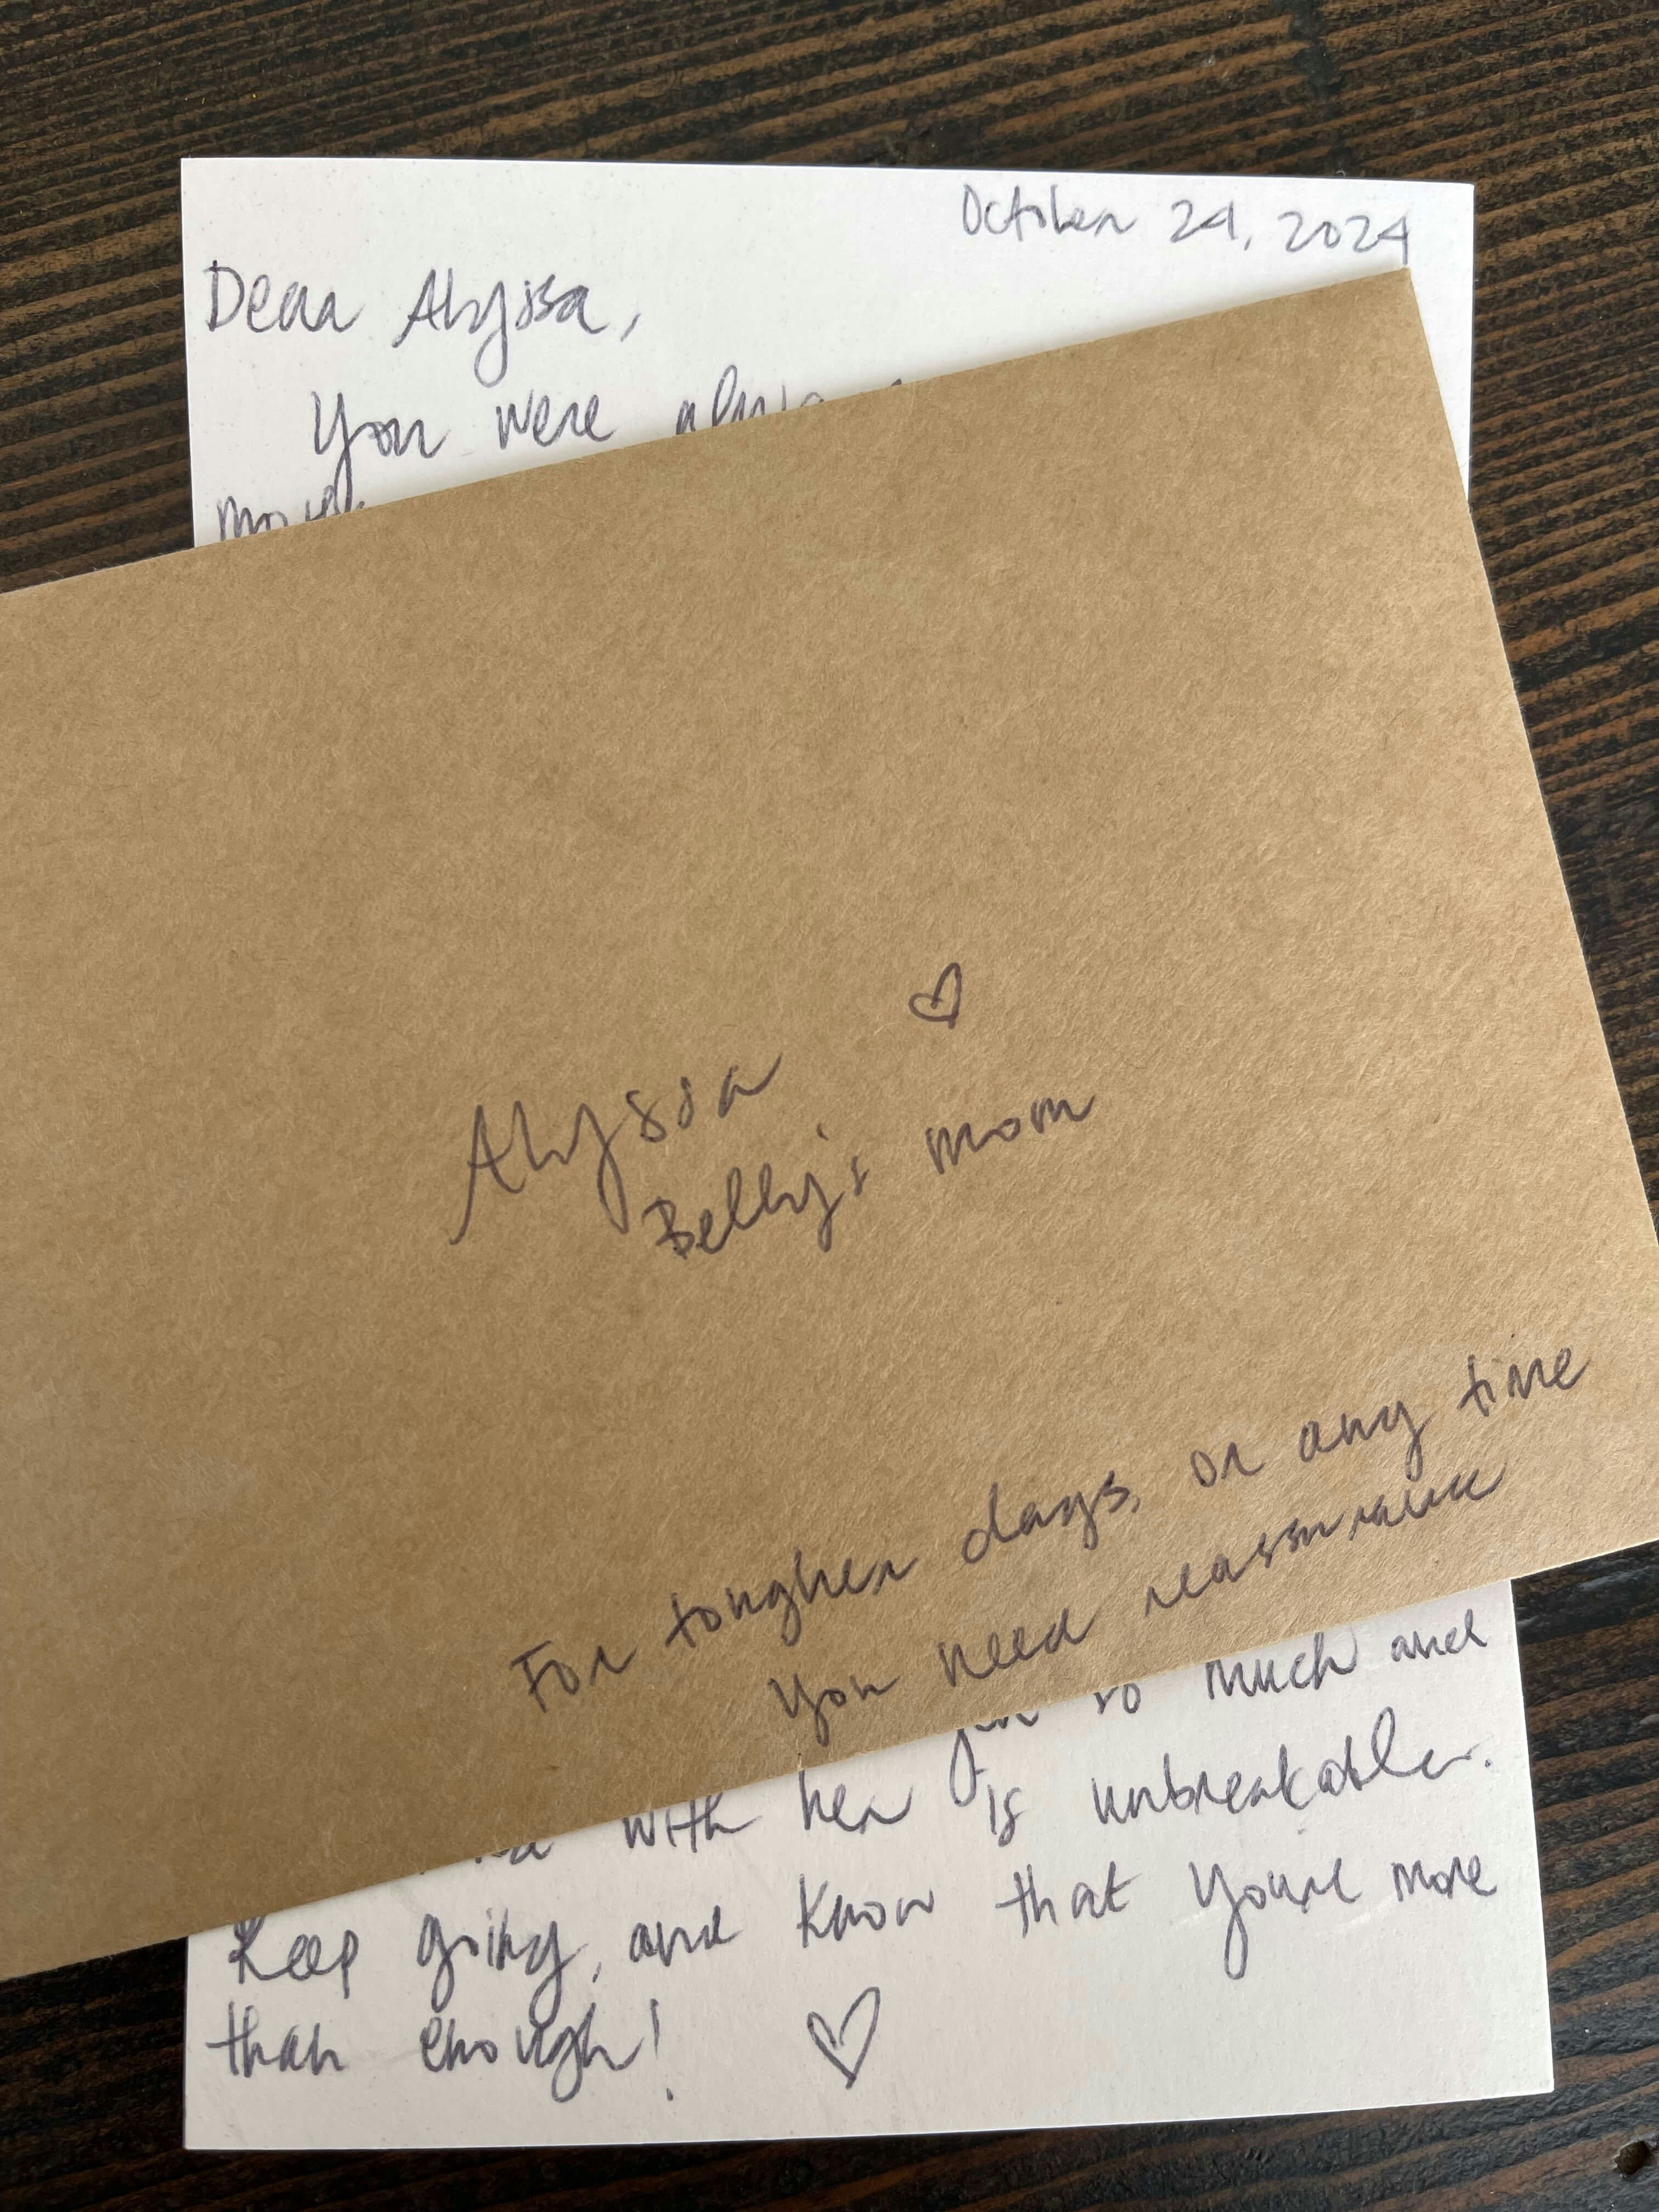 October 24, 2024
Dear Alyssa,
You were
Alyssa ♡
Belly's mom
For tougher days, or any time
you need reassurance
so much and
with her is unbreakable.
Keep going, and know that you're more
than enough! ♡